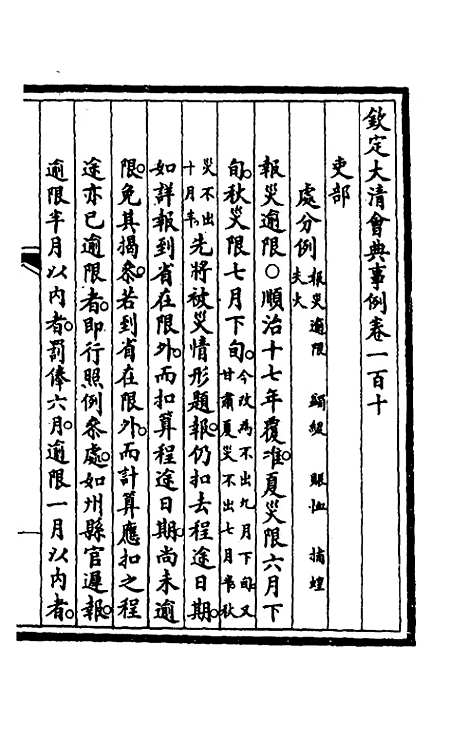 欽定大清會典事例卷一百十
吏部
處分例 報災逾限 蠲緩 賑恤 捕蝗 失火
報災逾限○順治十七年覆准。夏災限六月下
旬。秋災限七月下旬。今改爲不出九月下旬。又甘肅夏災不出七月半。秋
災不出十月半。先將被災情形題報。仍扣去程途日期。
如詳報到省在限外。而扣算程途日期。尚未逾
限。免其揭參。若到省在限外。而計算應扣之程
途亦已逾限者。即行照例參處。如州縣官遲報。
逾限半月以內者。罰俸六月。逾限一月以內者。